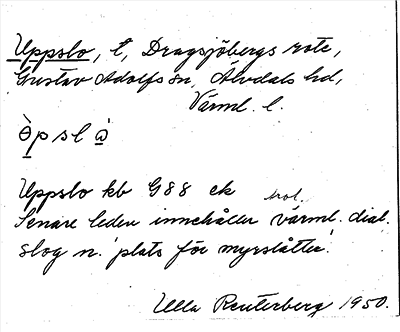 Uppslo, l, Dragsjöbergs rote,
Gustav Adolfs sn, Älvdals hd,
Värml. l.
ò̱psl ὼ̱
Uppslo kb G88 ek
trol.
Senare leden innehåller värml. dial.
slog n. 'plats för myrslåtter'.
Ulla Reuterberg 1950.